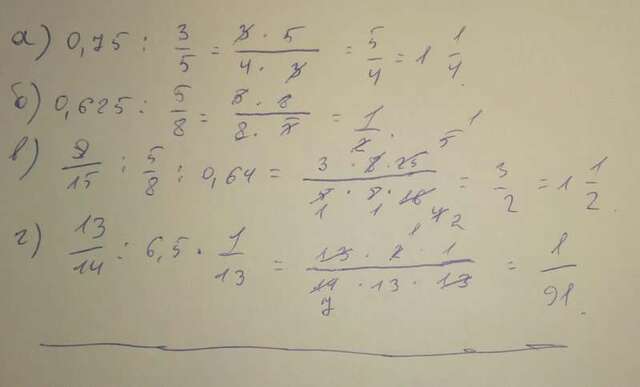 а) 0,75 : 3/5 = 3 · 5 / 4 · 3 = 5/4 = 1 1/4.
б) 0,625 : 5/8 = 5 · 8 / 8 · 5 = 1/2.
в) 9/15 : 5/8 : 0,64 = 3 · 8 · 25 / 5 · 5 · 16 = 3/2 = 1 1/2.
г) 13/14 : 6,5 · 1/13 = 13 · 2 · 1 / 14 · 13 · 13 = 1/91.